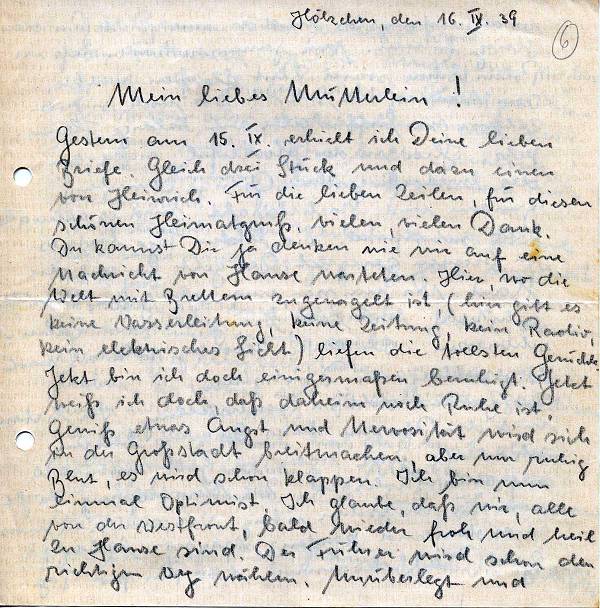 Hölzchen, den 16. IX. 39
6
Mein liebes Mütterlein!
Gestern am 15. IX. erhielt ich Deine lieben
Briefe. Gleich drei Stück und dazu einen
von Heinrich. Für die lieben Zeilen, für diesen
schönen Heimatgruß, vielen, vielen Dank.
Du kannst Dir ja denken wie wir auf eine
Nachricht von Hause warteten. Hier, wo die
Welt mit Brettern zugenagelt ist, (hier gibt es
keine Wasserleitung, keine Zeitung, kein Radio,
kein elektrisches Licht) liefen die tollsten Gerüchte.
Jetzt bin ich doch einigermaßen beruhigt. Jetzt
weiß ich doch, daß daheim noch Ruhe ist.
Gewiß etwas Angst und Nervosität wird sich
in der Großstadt breitmachen, aber nur ruhig
Blut, es wird schon klappen. Ich bin nun
einmal Optimist. Ich glaube, daß wir, alle
von der Westfront, bald wieder froh und heil
zu Hause sind. Der Führer wird schon den
richtigen Weg wählen. Unüberlegt und